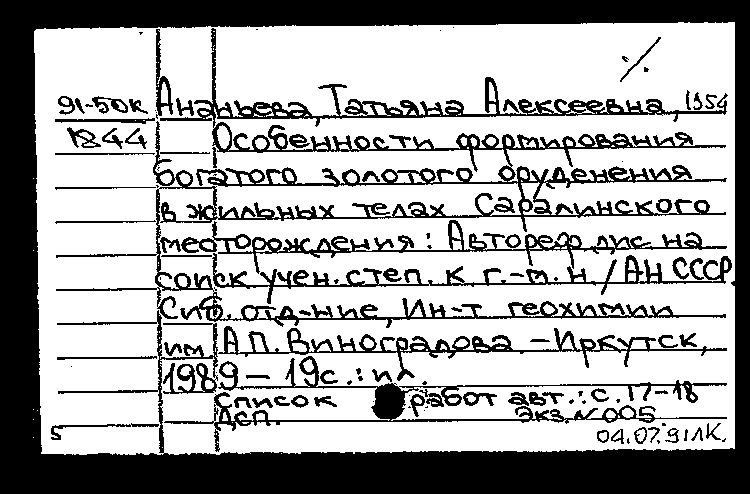 91-50к Ананьева, Татьяна Алексеевна, 1954
1844 Особенности формирования
богатого золотого оруденения
в жильных телах Саралинского
месторождения: Автореф дис на
соиск учен. степ. к г.-м. н. / АН СССР.
Сиб. отд-ние, Ин-т геохимии
им А.П. Виноградова. – Иркутск,
1989 – 19с.: ил.
Список работ авт.: с. 17-18
ДСП. Экз. № 005
5 04.07.91 ЛК.